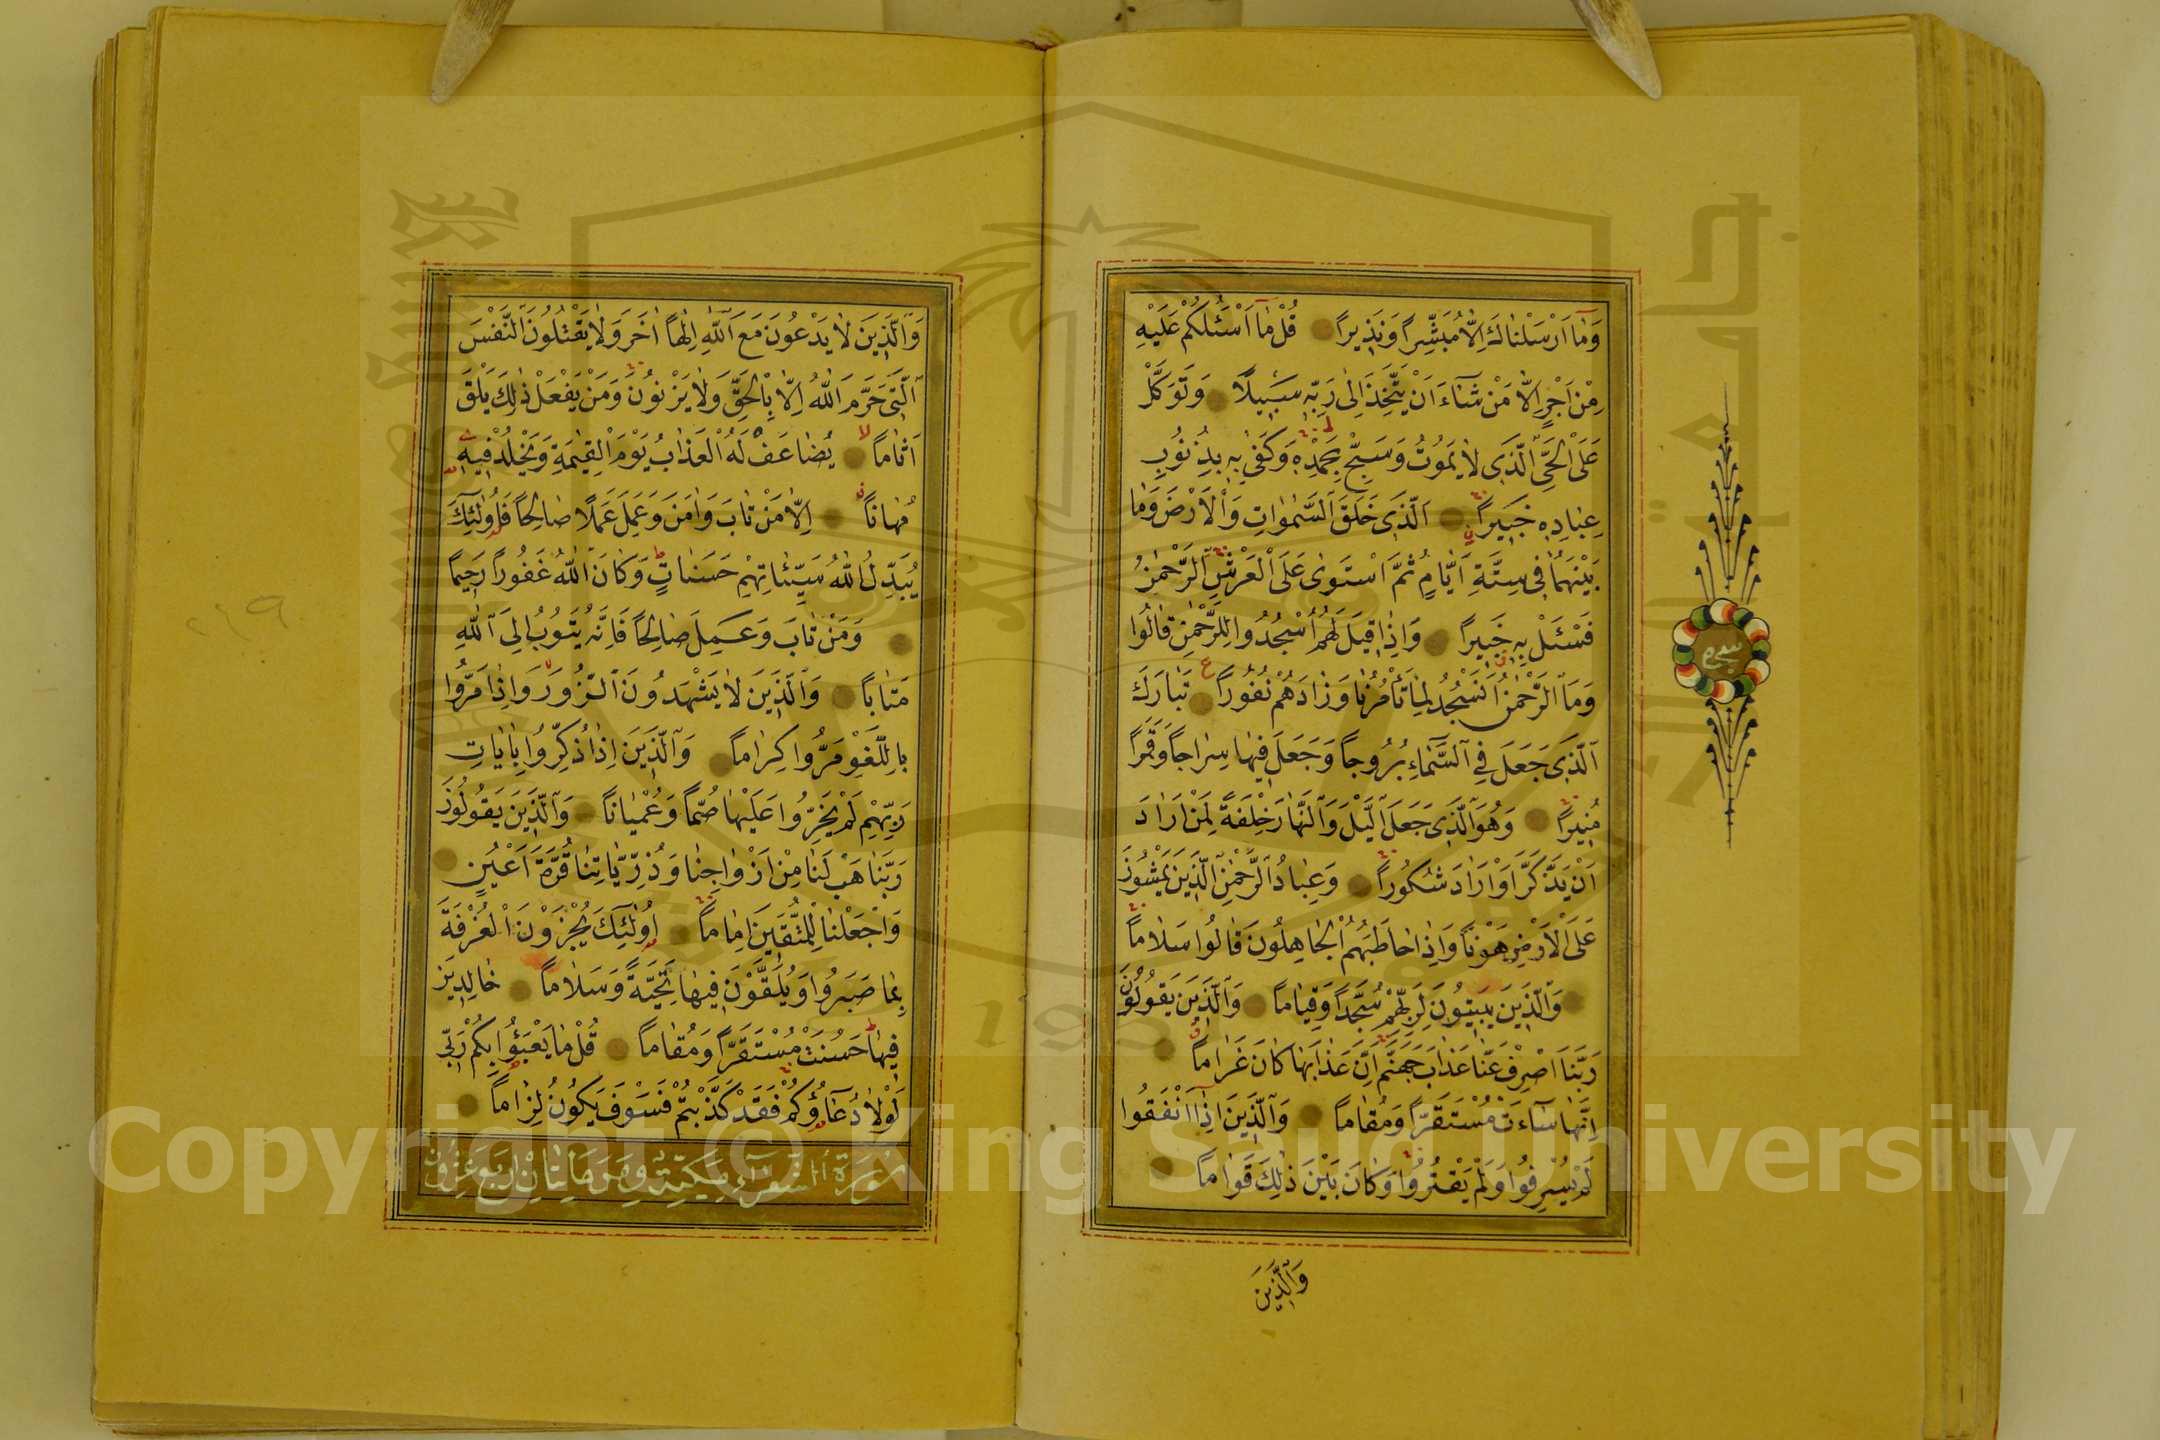 وَمٰٓا اَرْسَلْنَاكَ اِلَّا مُبَشِّرًا وَنَذِيرًا قُلْ مٰٓا اَسْـَٔلُكُمْ عَلَيْهِ
مِنْ اَجْرٍ اِلَّا مَنْ شَٓاءَ اَنْ يَتَّخِذَ اِلٰى رَبِّهٖ سَبِيلًا وَتَوَكَّلْ
عَلَى الْحَيِّ الَّذِى لَا يَمُوتُ وَسَبِّحْ بِحَمْدِهٖ وَكَفٰى بِهٖ بِذُنُوبِ
عِبَادِهٖ خَبِيرًا اَلَّذِى خَلَقَ السَّمٰوَاتِ وَالْاَرْضَ وَمَا
بَيْنَهُمَا فِى سِتَّةِ اَيَّامٍ ثُمَّ اسْتَوٰى عَلَى الْعَرْشِ اَلرَّحْمٰنُ
فَسْـَٔلْ بِهٖ خَبِيرًا وَاِذَا قِيلَ لَهُمُ اسْجُدُوا لِلرَّحْمٰنِ قَالُوا
وَمَا الرَّحْمٰنُ اَنَسْجُدُ لِمَا تَأْمُرُنَا وَزَادَهُمْ نُفُورًا تَبَارَكَ
الَّذِى جَعَلَ فِى السَّمَٓاءِ بُرُوجًا وَجَعَلَ فِيهَا سِرَاجًا وَقَمَرًا
مُنِيرًا وَهُوَ الَّذِى جَعَلَ الَّيْلَ وَالنَّهَارَ خِلْفَةً لِمَنْ اَرَادَ
اَنْ يَذَّكَّرَ اَوْ اَرَادَ شُكُورًا وَعِبَادُ الرَّحْمٰنِ الَّذِينَ يَمْشُونَ
عَلَى الْاَرْضِ هَوْنًا وَاِذَا خَاطَبَهُمُ الْجَاهِلُونَ قَالُوا سَلَامًا
وَالَّذِينَ يَبِيتُونَ لِرَبِّهِمْ سُجَّدًا وَقِيَامًا وَالَّذِينَ يَقُولُونَ
رَبَّنَا اصْرِفْ عَنَّا عَذَابَ جَهَنَّمَ اِنَّ عَذَابَهَا كَانَ غَرَامًا
اِنَّهَا سَٓاءَتْ مُسْتَقَرًّا وَمُقَامًا وَالَّذِينَ اِذَٓا اَنْفَقُوا
لَمْ يُسْرِفُوا وَلَمْ يَقْتُرُوا وَكَانَ بَيْنَ ذٰلِكَ قَوَامًا
وَالَّذِينَ
وَالَّذِينَ لَا يَدْعُونَ مَعَ اللّٰهِ اِلٰهًا اٰخَرَ وَلَا يَقْتُلُونَ النَّفْسَ
الَّتِى حَرَّمَ اللّٰهُ اِلَّا بِالْحَقِّ وَلَا يَزْنُونَ وَمَنْ يَفْعَلْ ذٰلِكَ يَلْقَ
اَثَامًا يُضَاعَفْ لَهُ الْعَذَابُ يَوْمَ الْقِيٰمَةِ وَيَخْلُدْ فِيهٖ
مُهَانًا اِلَّا مَنْ تَابَ وَاٰمَنَ وَعَمِلَ عَمَلًا صَالِحًا فَاُولٰٓئِكَ
يُبَدِّلُ اللّٰهُ سَيِّـَٔاتِهِمْ حَسَنَاتٍ وَكَانَ اللّٰهُ غَفُورًا رَحِيمًا
وَمَنْ تَابَ وَعَمِلَ صَالِحًا فَاِنَّهُ يَتُوبُ اِلَى اللّٰهِ
مَتَابًا وَالَّذِينَ لَا يَشْهَدُونَ الزُّورَ وَاِذَا مَرُّوا
بِاللَّغْوِ مَرُّوا كِرَامًا وَالَّذِينَ اِذَا ذُكِّرُوا بِاٰيَاتِ
رَبِّهِمْ لَمْ يَخِرُّوا عَلَيْهَا صُمًّا وَعُمْيَانًا وَالَّذِينَ يَقُولُونَ
رَبَّنَا هَبْ لَنَا مِنْ اَزْوَاجِنَا وَذُرِّيَّاتِنَا قُرَّةَ اَعْيُنٍ
وَاجْعَلْنَا لِلْمُتَّقِينَ اِمَامًا اُولٰٓئِكَ يُجْزَوْنَ الْغُرْفَةَ
بِمَا صَبَرُوا وَيُلَقَّوْنَ فِيهَا تَحِيَّةً وَسَلَامًا خَالِدِينَ
فِيهَا حَسُنَتْ مُسْتَقَرًّا وَمُقَامًا قُلْ مَا يَعْبَؤُا بِكُمْ رَبِّى
لَوْلَا دُعَٓاؤُكُمْ فَقَدْ كَذَّبْتُمْ فَسَوْفَ يَكُونُ لِزَامًا
سُورَةُ الشُّعَرَٓاءِ مَكِّيَّةٌ وَهِىَ مِائَتَانِ
Copyright © King Saud University